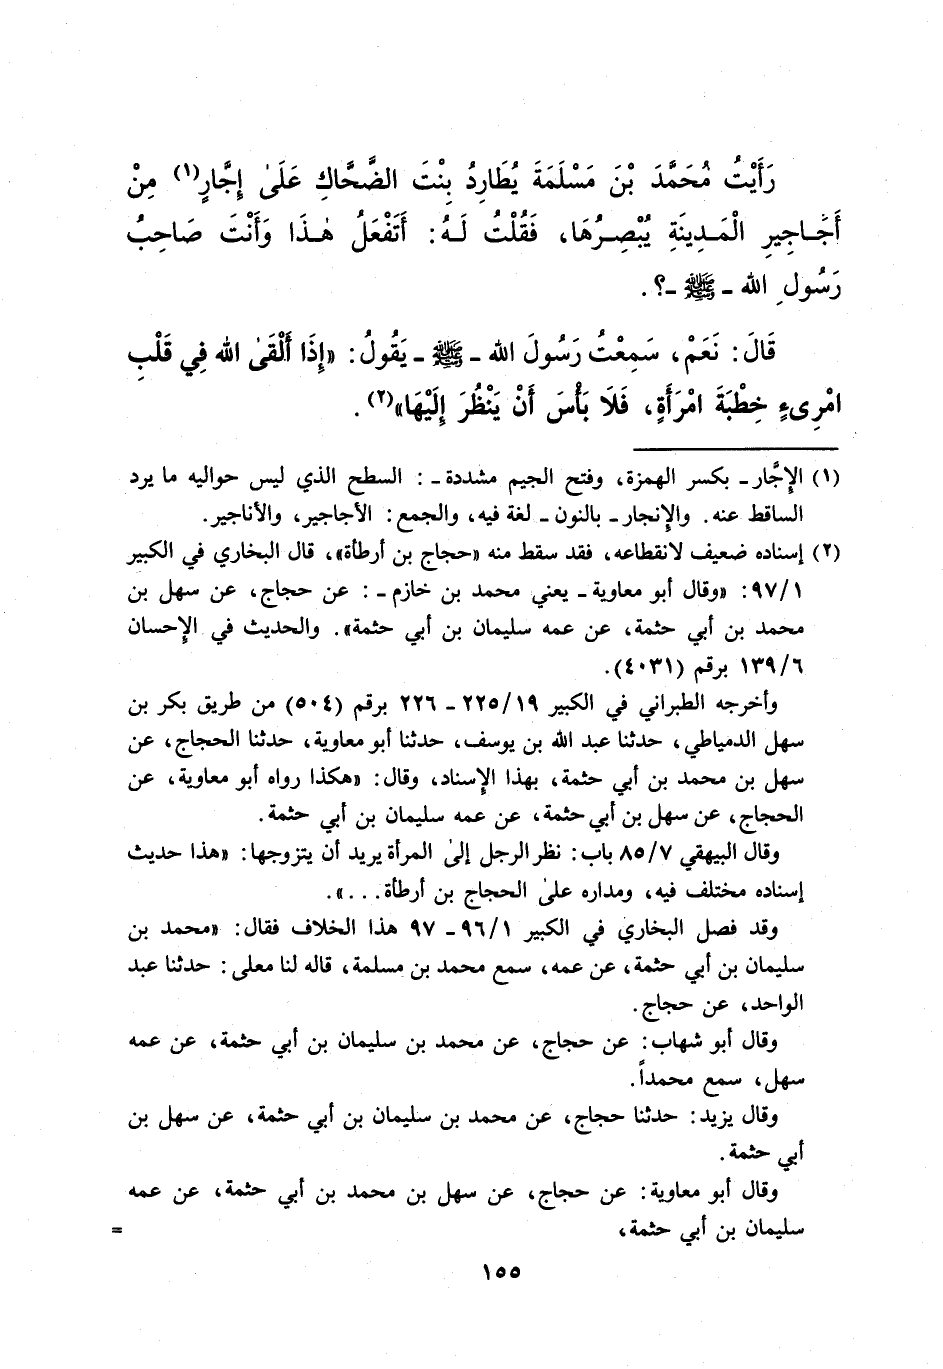 رَأَيْتُ مُحَمَّدَ بْنَ مَسْلَمَةَ يُطَارِدُ بِنْتَ الضَّحَّاكِ عَلَىٰ إِجَّارٍ(١) مِنْ
أَجَاجِيرِ الْمَدِينَةِ يُبْصِرُهَا، فَقُلْتُ لَهُ: أَتَفْعَلُ هٰذَا وَأَنْتَ صَاحِبُ
رَسُولِ الله ـ ﷺ ـ؟.
قَالَ: نَعَمْ، سَمِعْتُ رَسُولَ الله ـ ﷺ ـ يَقُولُ: «إِذَا أَلْقَىٰ الله فِي قَلْبِ
امْرِىءٍ خِطْبَةَ امْرَأَةٍ، فَلَا بَأْسَ أَنْ يَنْظُرَ إِلَيْهَا»(٢).
(١) الإِجَّار ـ بكسر الهمزة، وفتح الجيم مشددة ـ : السطح الذي ليس حواليه ما يرد
الساقط عنه. والإنجار ـ بالنون ـ لغة فيه، والجمع: الأجاجير، والأناجير.
(٢) إسناده ضعيف لانقطاعه، فقد سقط منه «حجاج بن أرطأة»، قال البخاري في الكبير
٩٧/١: «وقال أبو معاوية ـ يعني محمد بن خازم ـ : عن حجاج، عن سهل بن
محمد بن أبي حثمة، عن عمه سليمان بن أبي حثمة». والحديث في الإحسان
١٣٩/٦ برقم (٤٠٣١).
وأخرجه الطبراني في الكبير ٢٢٥/١٩ ـ ٢٢٦ برقم (٥٠٤) من طريق بكر بن
سهل الدمياطي، حدثنا عبد الله بن يوسف، حدثنا أبو معاوية، حدثنا الحجاج، عن
سهل بن محمد بن أبي حثمة، بهذا الإِسناد، وقال: «هكذا رواه أبو معاوية، عن
الحجاج، عن سهل بن أبي حثمة، عن عمه سليمان بن أبي حثمة.
وقال البيهقي ٨٥/٧ باب: نظر الرجل إلىٰ المرأة يريد أن يتزوجها: «هذا حديث
إسناده مختلف فيه، ومداره علىٰ الحجاج بن أرطأة....».
وقد فصل البخاري في الكبير ٩٦/١ ـ ٩٧ هذا الخلاف فقال: «محمد بن
سليمان بن أبي حثمة، عن عمه، سمع محمد بن مسلمة، قاله لنا معلى: حدثنا عبد
الواحد، عن حجاج.
وقال أبو شهاب: عن حجاج، عن محمد بن سليمان بن أبي حثمة، عن عمه
سهل، سمع محمداً.
وقال يزيد: حدثنا حجاج، عن محمد بن سليمان بن أبي حثمة، عن سهل بن
أبي حثمة.
وقال أبو معاوية: عن حجاج، عن سهل بن محمد بن أبي حثمة، عن عمه
سليمان بن أبي حثمة، =
١٥٥